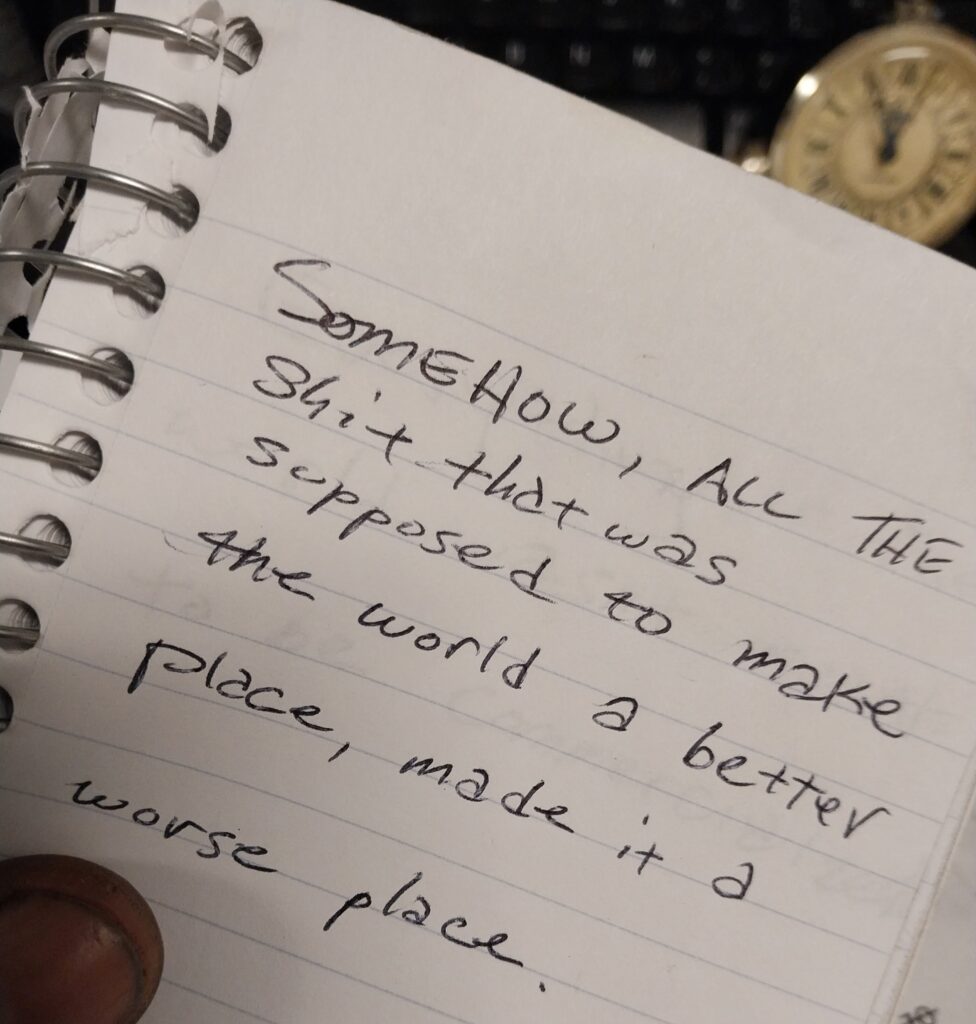 SOMEHOW, ALL THE
Shit that was
supposed to make
the world a better
place, made it a
worse place.